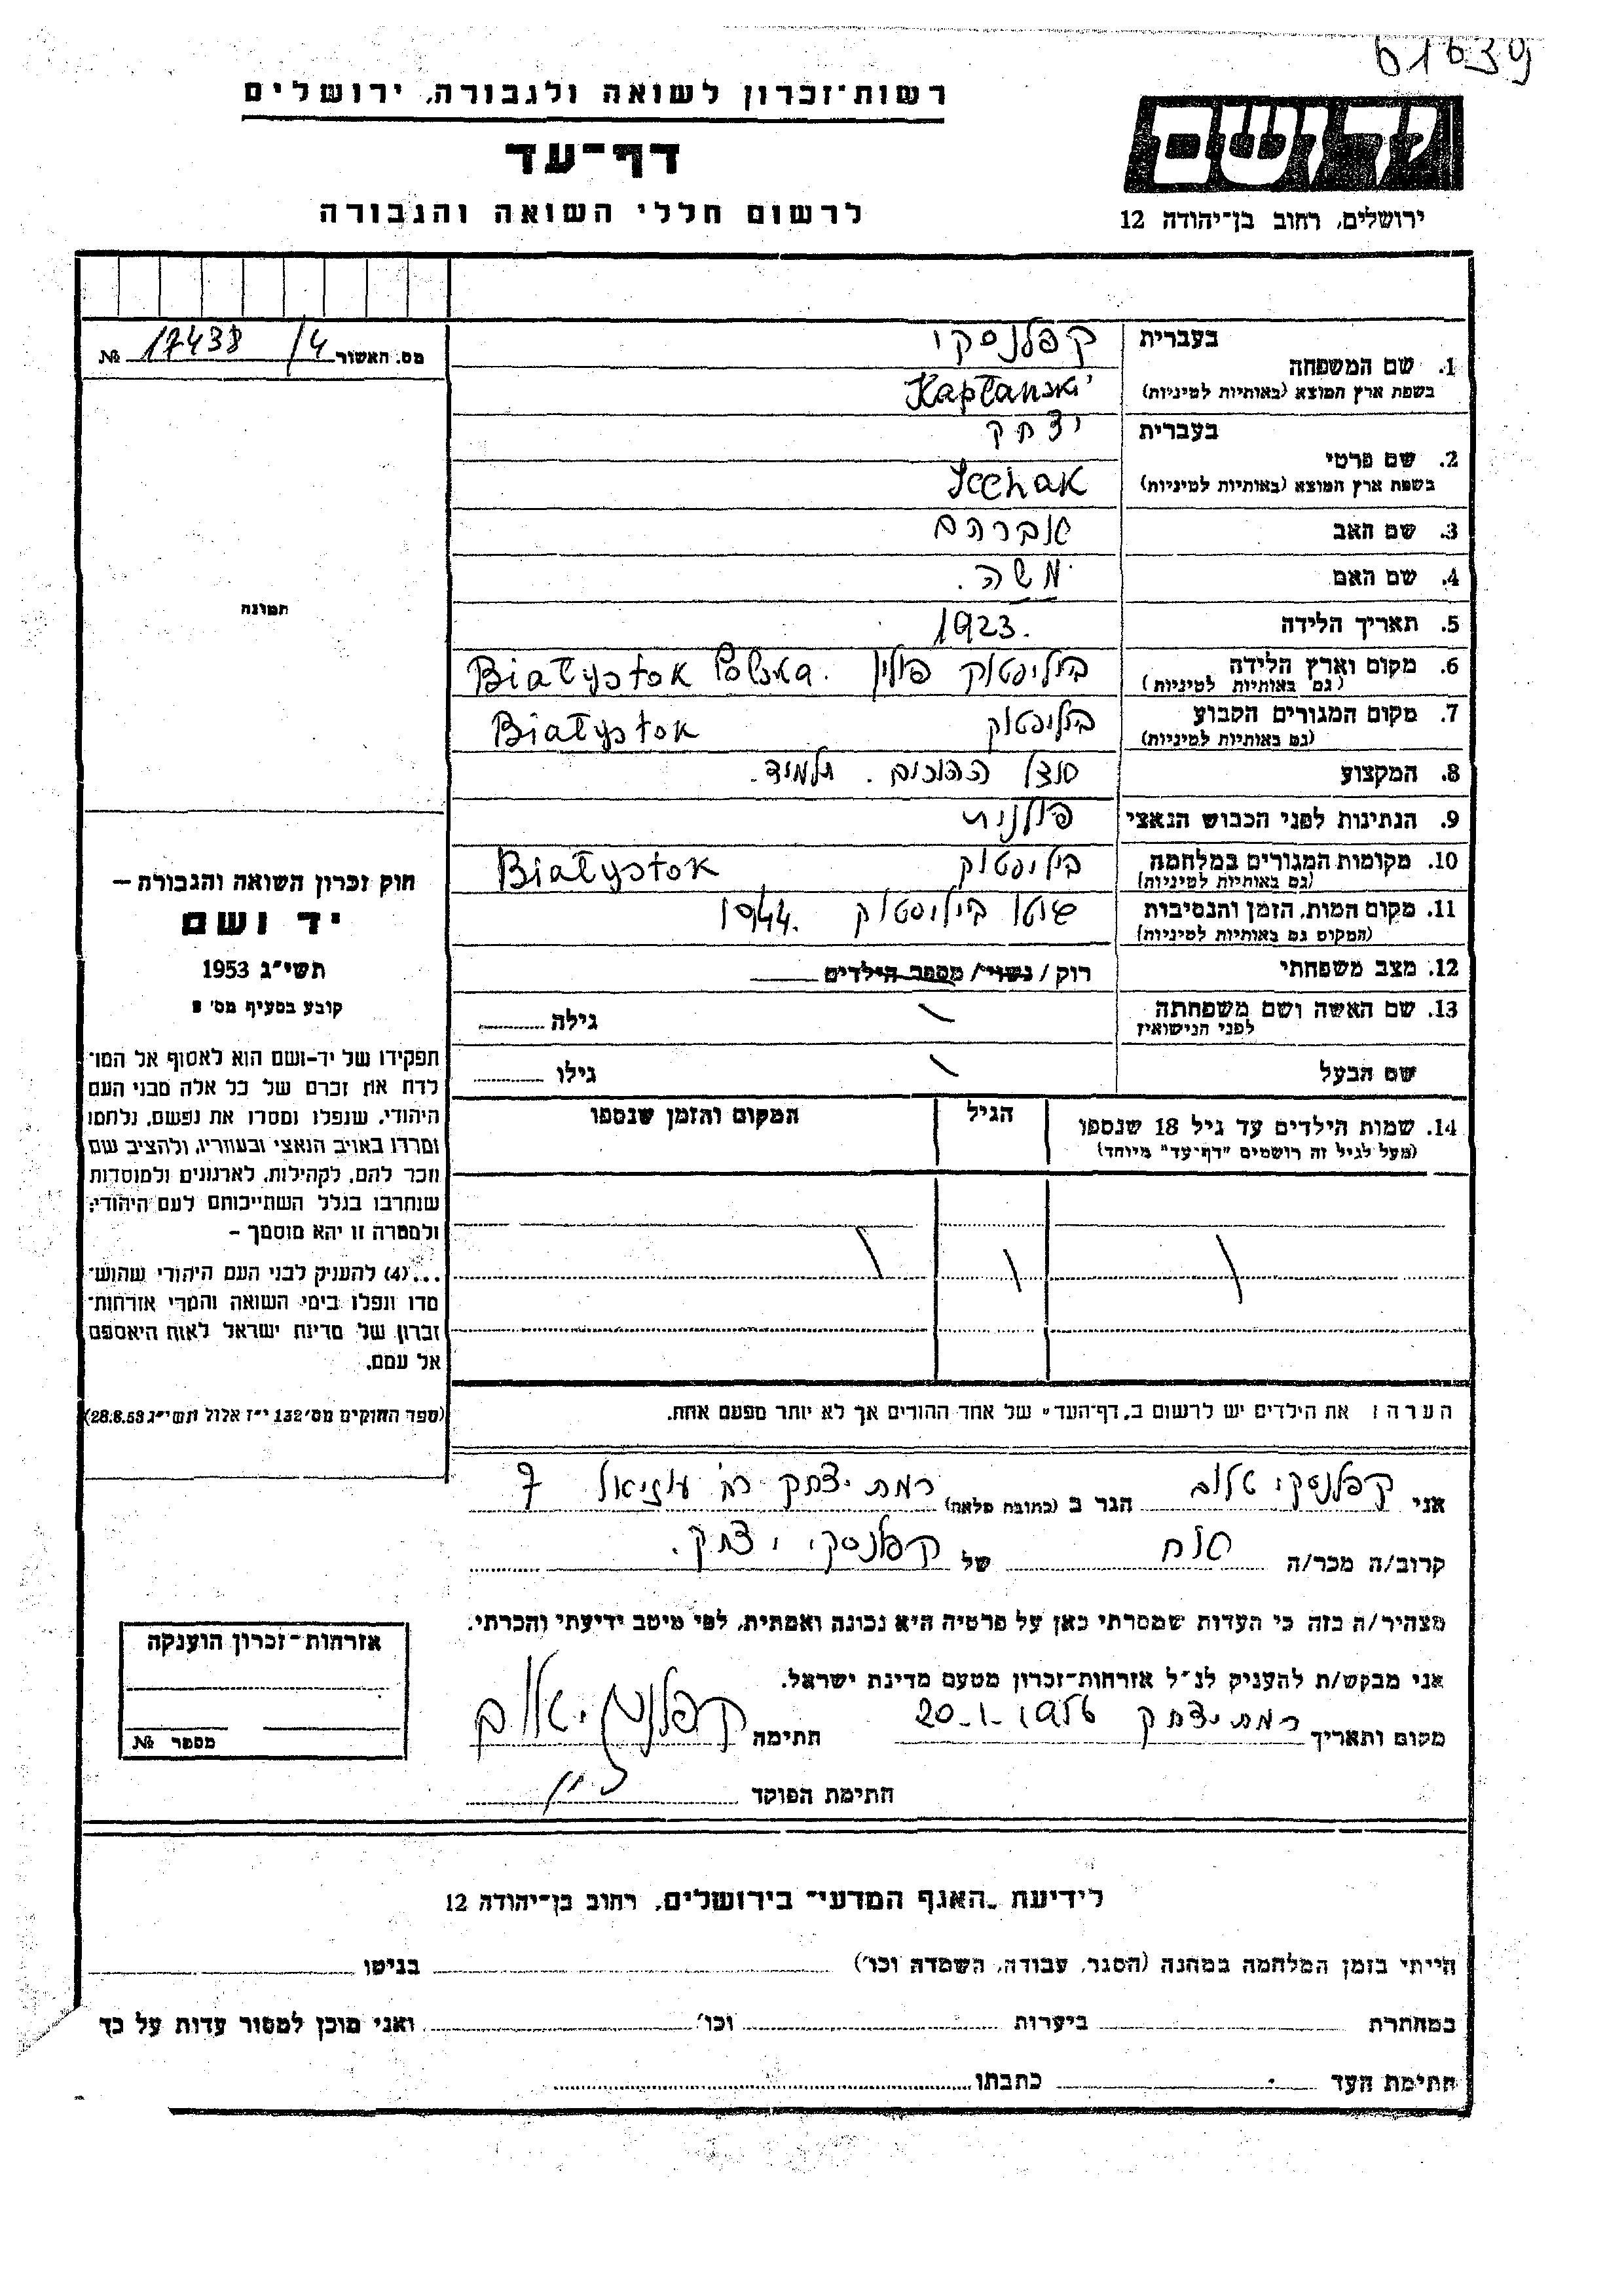 61639
רשות־זכרון לשואה ולגבורה, ירושלים
דף־עד
לרשום חללי השואה והגבורה
יד ושם
ירושלים, רחוב בן־יהודה 12
מס. האשור 17438 /4 №
בעברית קפלנסקי
1. שם המשפחה
בשפת ארץ המוצא (באותיות לטיניות) Kapłanski
בעברית יצחק
2. שם פרטי
בשפת ארץ המוצא (באותיות לטיניות) Icchak
3. שם האב אברהם
4. שם האם משה.
5. תאריך הלידה 1923.
6. מקום וארץ הלידה ביליסטוק פולין Białystok Polska.
(גם באותיות לטיניות)
7. מקום המגורים הקבוע ביליסטוק Białystok
(גם באותיות לטיניות)
8. המקצוע אצל ההורים. תלמיד.
9. הנתינות לפני הכבוש הנאצי פולנית
10. מקומות המגורים במלחמה ביליסטוק Białystok
(גם באותיות לטיניות)
11. מקום המות, הזמן והנסיבות גיטו ביליסטוק 1944.
(המקום גם באותיות לטיניות)
12. מצב משפחתי רוק / נשוי / מספר הילדים
13. שם האשה ושם משפחתה גילה
לפני הנישואין
שם הבעל גילו
14. שמות הילדים עד גיל 18 שנספו הגיל המקום והזמן שנספו
(מעל לגיל זה רושמים "דף־עד" מיוחד)
הערה: את הילדים יש לרשום ב„דף־העד" של אחד ההורים אך לא יותר מפעם אחת.
תמונה
חוק זכרון השואה והגבורה —
יד ושם
תשי"ג 1953
קובע בסעיף מס' 2
תפקידו של יד-ושם הוא לאסוף אל המו־
לדת את זכרם של כל אלה מבני העם
היהודי, שנפלו ומסרו את נפשם, נלחמו
ומרדו באויב הנאצי ובעוזריו, ולהציב שם
וזכר להם, לקהילות, לארגונים ולמוסדות
שנחרבו בגלל השתייכותם לעם היהודי;
ולמטרה זו יהא מוסמך —
...(4) להעניק לבני העם היהודי שהוש־
מדו ונפלו בימי השואה והמרי אזרחות־
זכרון של מדינת ישראל לאות היאספם
אל עמם.
(ספר החוקים מס' 132 י"ז אלול תשי"ג 28.8.53)
אני קפלנסקי שלום הגר ב (כתובת מלאה) רמת יצחק רח' עוזיאל 7
קרוב/ה מכר/ה אח של קפלנסקי יצחק.
מצהיר/ה בזה כי העדות שמסרתי כאן על פרטיה היא נכונה ואמתית, לפי מיטב ידיעתי והכרתי.
אני מבקש/ת להעניק לנ"ל אזרחות־זכרון מטעם מדינת ישראל.
מקום ותאריך רמת יצחק 20.1.1956 חתימה קפלנסקי שלום
חתימת הפוקד
אזרחות־זכרון הוענקה
מספר №
לידיעת „האגף המדעי" בירושלים, רחוב בן־יהודה 12
הייתי בזמן המלחמה במחנה (הסגר, עבודה, השמדה וכו') בגיטו
במחתרת ביערות וכו' ואני מוכן למסור עדות על כך
חתימת העד כתבתו